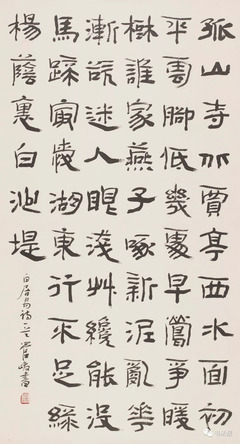 孤山寺北賈亭西水面初
平雲腳低幾處早鶯爭暖
樹誰家燕子啄新泥亂華
漸欲迷人眼淺艸纔能没
馬蹄最愛湖東行不足綠
楊蔭裏白沙堤
白居易詩 書